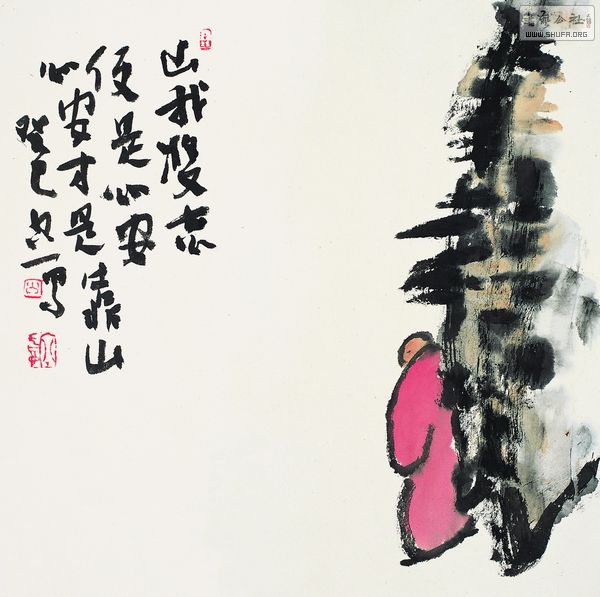 山我忘
便是心安
心安才是靠山
癸巳一写
公社
WWW.SHUFA.ORG